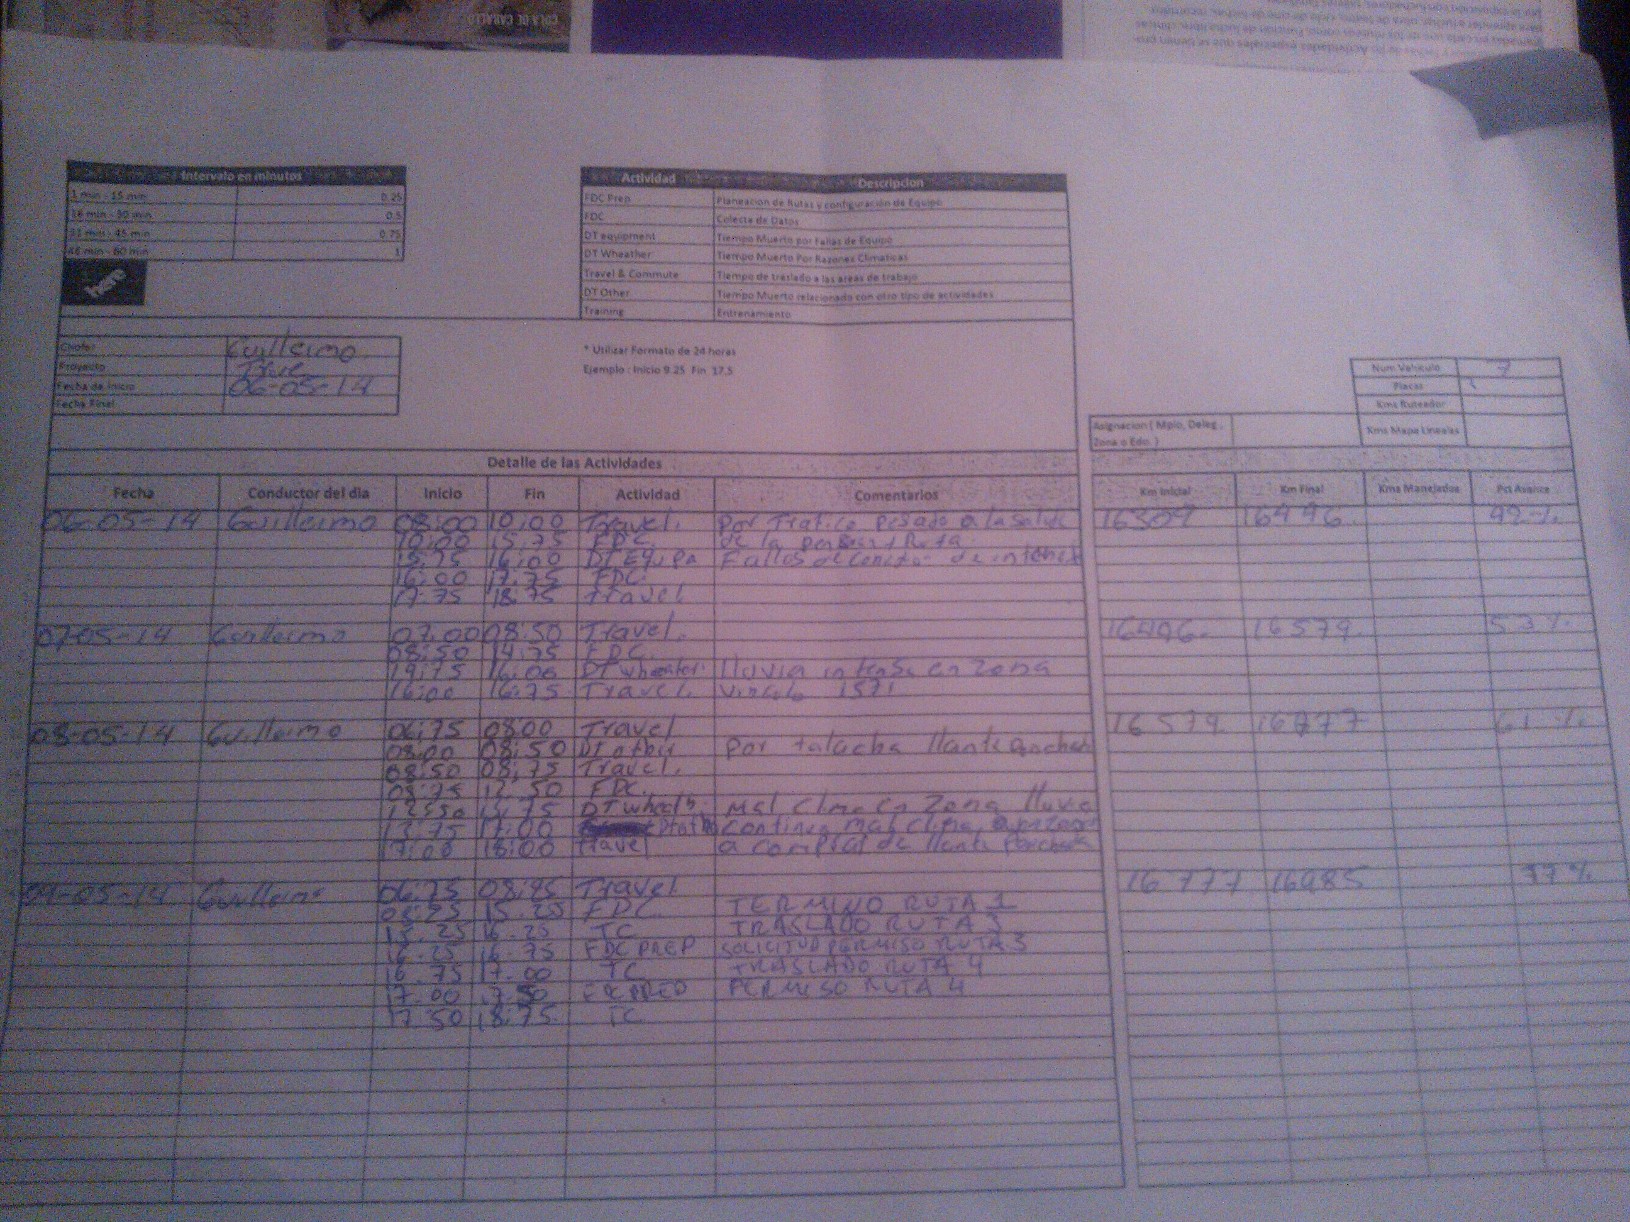 COLA DE CABALLO
Intervalo en minutos
1 min - 15 min 0.25
16 min - 30 min 0.5
31 min - 45 min 0.75
46 min - 60 min 1
here
Actividad Descripcion
FDC Prep Planeacion de Rutas y configuración de Equipo
FDC Colecta de Datos
DT equipment Tiempo Muerto por Fallas de Equipo
DT Wheather Tiempo Muerto Por Razones Climaticas
Travel & Commute Tiempo de traslado a las areas de trabajo
DT Other Tiempo Muerto relacionado con otro tipo de actividades
Training Entrenamiento
Chofer Guillermo
Proyecto
Fecha de Inicio 06-05-14
Fecha Final
* Utilizar Formato de 24 horas
Ejemplo : Inicio 9.25 Fin 17.5
Num Vehiculo 7
Placas
Kms Ruteador
Kms Mapa Lineales
Asignacion ( Mpio, Deleg,
Zona o Edo. )
Detalle de las Actividades
Fecha Conductor del dia Inicio Fin Actividad Comentarios Km Inicial Km Final Kms Manejados Pct Avance
06-05-14 Guillermo 08:00 10:00 Travel. por Trafico pesado a la salida 16496
10:00 15.75 FDC. de la
15.75 16:00 DT Equipa Fallos de de internet
16:00 17.75 FDC.
17.75 18.75 travel
07-05-14 Guillermo 07:00 08:50 Travel. 16496. 16579. 53%
08:50 14:75 FDC.
14:75 16:00 DT wheater. lluvia intensa en zona
16:00 16:75 Travel. vinculo 1571
08-05-14 Guillermo 06:75 08:00 Travel 16579 16777 61%
08:00 08:50 DT other por talacha llanta ponchada
08:50 08:75 Travel.
08:75 12:50 FDC.
12:50 13:75 DT wheath. mal clima en zona lluvia
13:75 17:00 continua mal clima
17:00 18:00 travel a comprar llanta ponchada
09-05-14 Guillermo 06:25 08:25 Travel 16777 16985 77%
08:25 15.25 FDC TERMINO RUTA 1
15.25 16.25 TC TRASLADO RUTA 3
16.25 16.75 FDC PREP SOLICITUD PERMISO RUTA 3
16.75 17.00 TC TRASLADO RUTA 4
17.00 17.50 PERMISO RUTA 4
17.50 18.75 TC